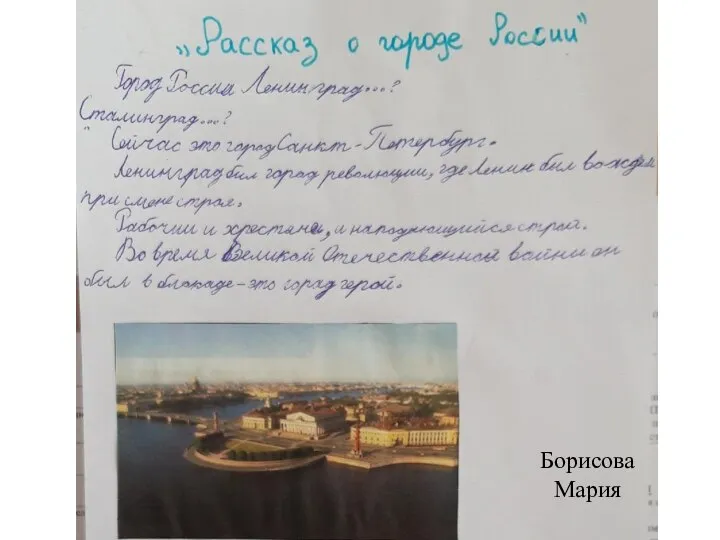 „Рассказ о городе России"
Город России Ленинград...?
Сталинград...?
Сейчас это город Санкт-Петербург.
Ленинград был город революции, где Ленин был вождем
при смене строя.
Рабочии и хрестяне, и нападающийся строй.
Во время Великой Отечественной войны он
был в блокаде - это город герой.
Борисова
Мария